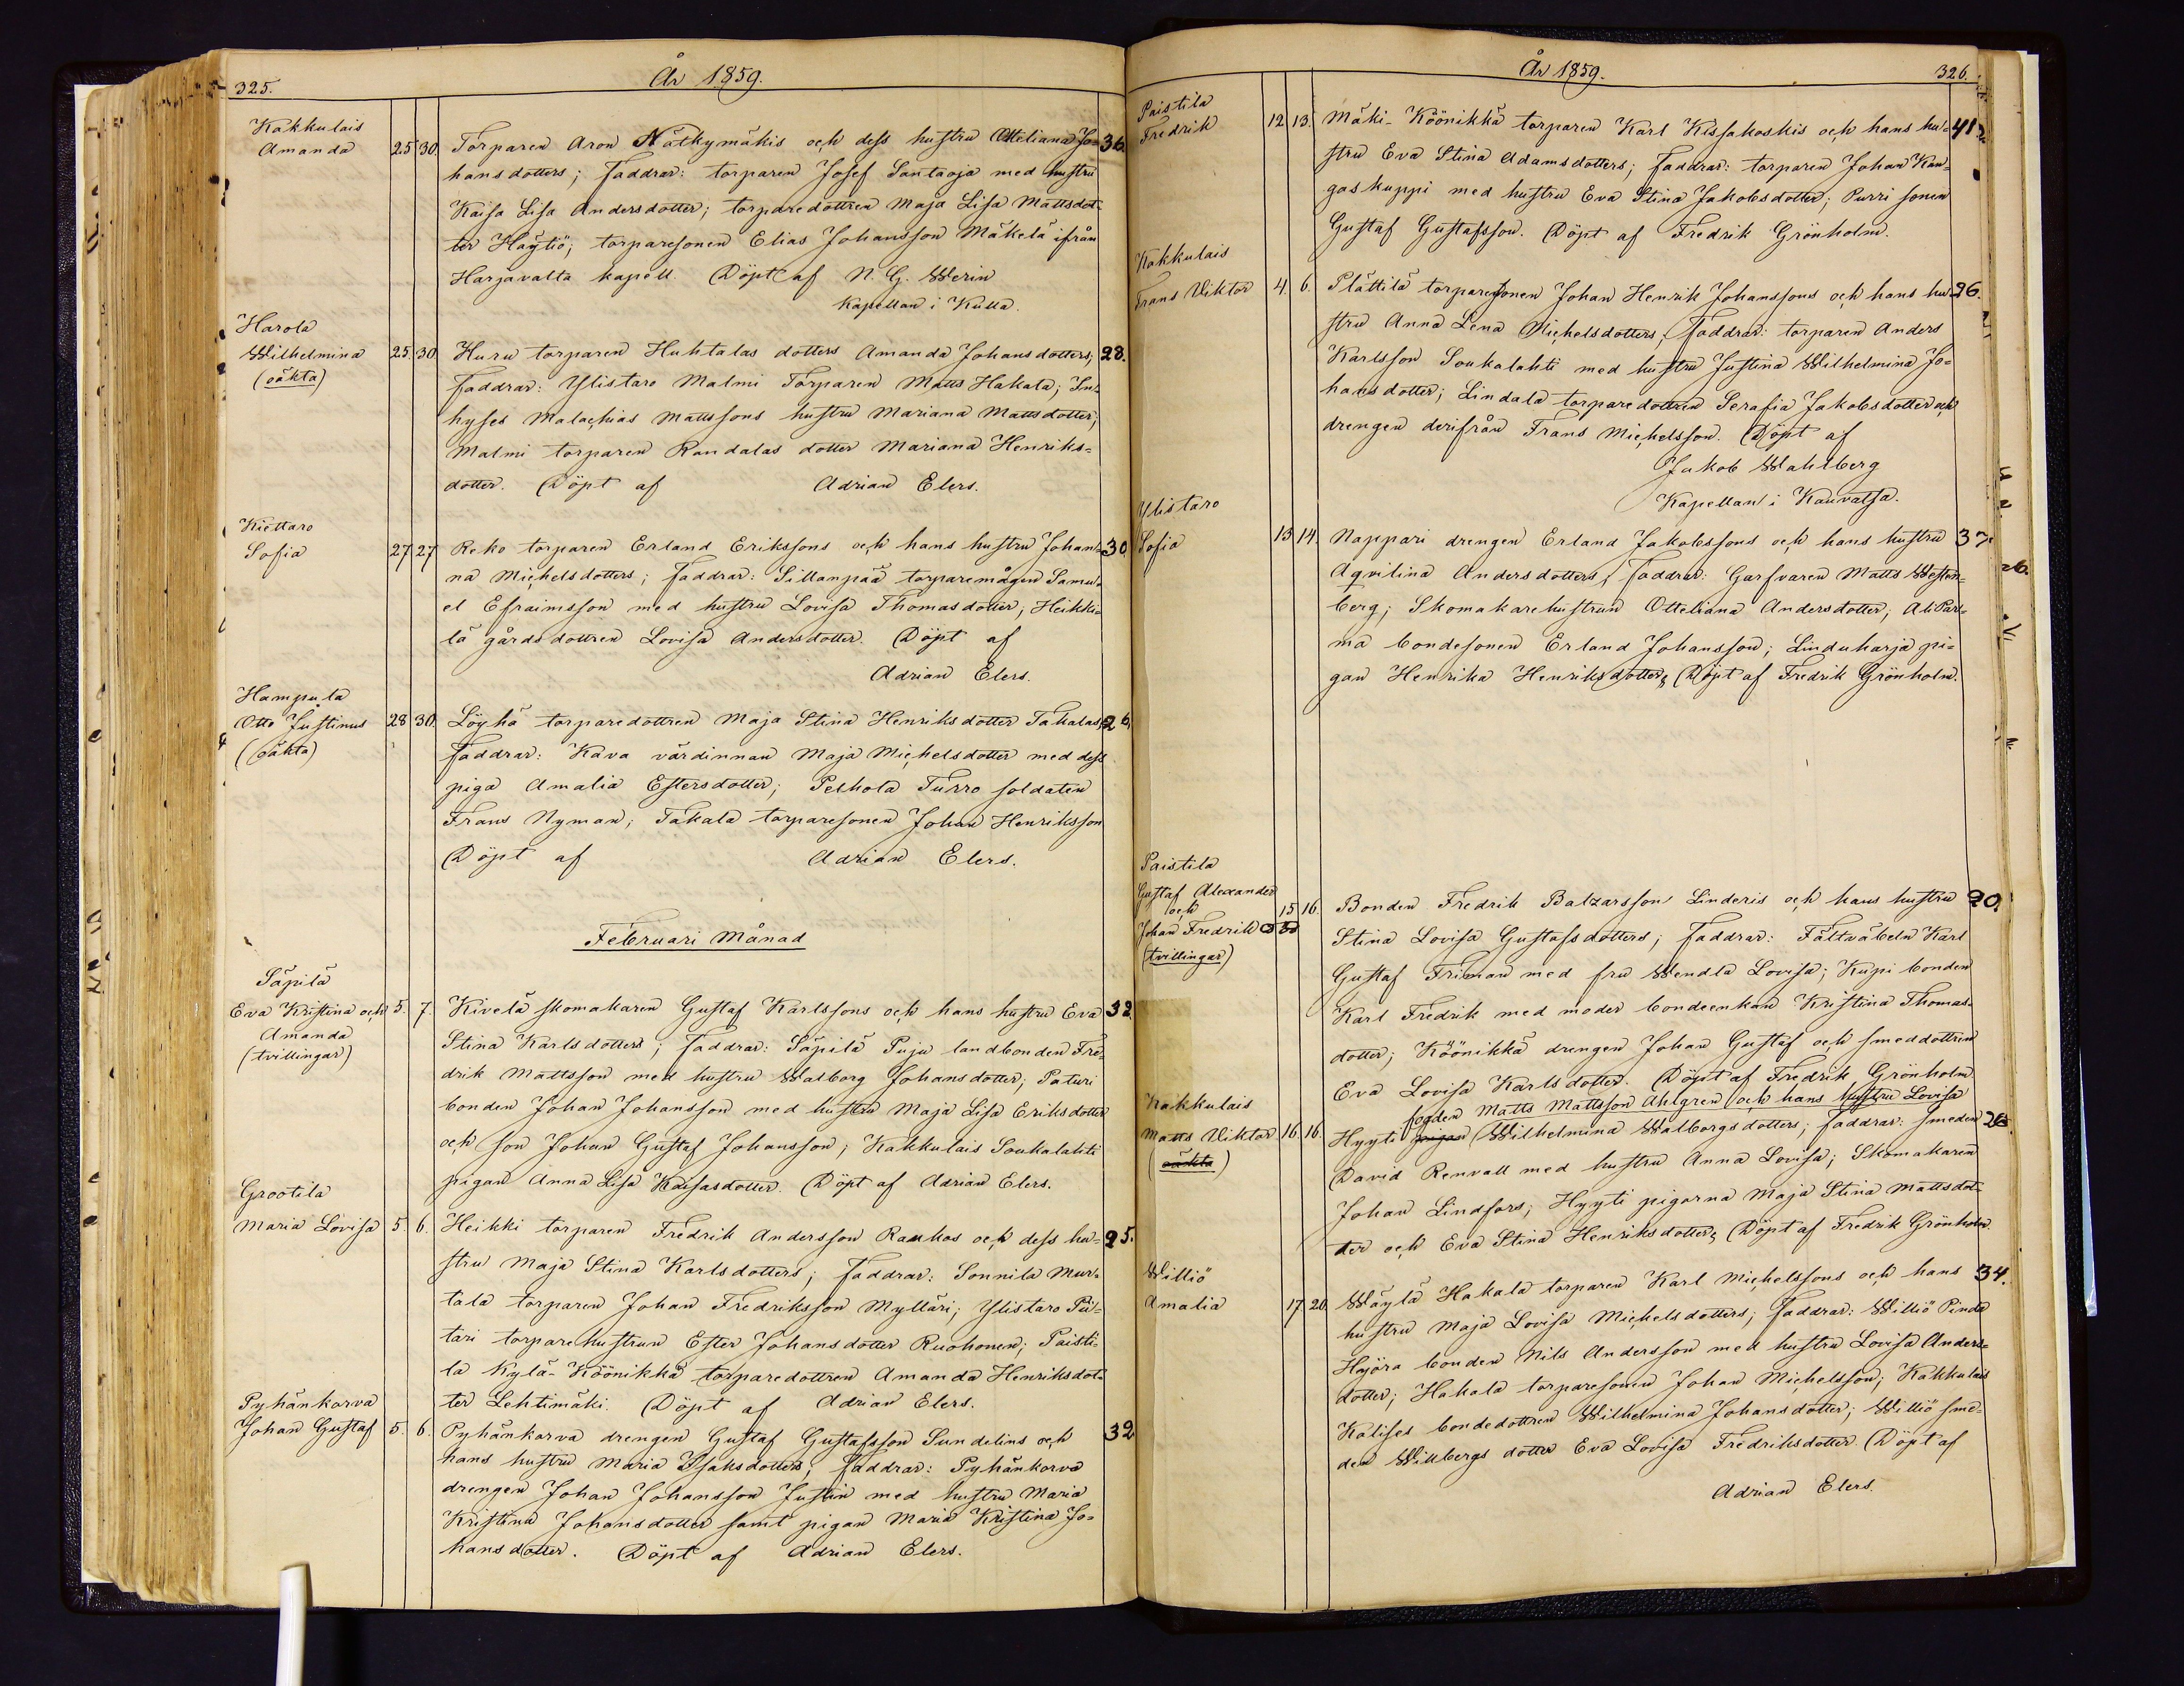 325.
År 1859.
Kakkulais
Amanda
25 30. Torparen Aron Nätkymäkis och dess hustru Otteliana Jo= 36.
hansdotters; Faddrar: torparen Josef Santaoja med hustru
Kaisa Lisa Andersdotter; torparedottren Maja Lisa Mattsdot=
ter Häyliö; torparesonen Elias Johansson Mäkelä ifrån
Harjavalta kapell. Döpt af N. G. Werin
Kapellan i Kulla.
Harola
Wilhelmina
(oäkta)
25. 30. Huru torparen Huhtalas dotters Amanda Johansdotters; 28.
Faddrar: Ylistaro Malmi Torparen Matts Hakala; In=
hyses Malachias Mattssons hustru Mariana Mattsdotter;
Malmi torparen Randalas dotter Mariana Henriks=
dotter. Döpt af Adrian Elers.
Kiettaro
Sofia
27 27 Reko torparen Erland Erikssons och hans hustru Johan= 30
na Michelsdotters; Faddrar: Sillanpää torparemågen Samu=
el Efraimsson med hustru Lovisa Thomasdotter; Heikki=
lä gårdsdottren Lovisa Andersdotter. Döpt af
Adrian Elers.
Hampula
Otto Justinus
(oäkta)
28 30. Löyhä torparedottren Maja Stina Henriksdotter Takalas; 26.
Faddrar: Kava värdinnan Maja Michelsdotter med dess
piga Amalia Estersdotter; Pelhola Turro soldaten
Frans Nyman; Takala torparesonen Johan Henriksson
Döpt af Adrian Elers.
Februari Månad
Säpilä
Eva Kristina och
Amanda
(tvillingar)
5. 7. Kivelä skomakaren Gustaf Karlssons och hans hustru Eva 32.
Stina Karlsdotters; Faddrar: Säpilä Puju landbonden Fre=
drik Mattsson med hustru Walborg Johansdotter; Paturi
bonden Johan Johansson med hustru Maja Lisa Eriksdotter
och son Johan Gustaf Johansson; Kakkulais Soukalahti
pigan Anna Lisa Kaisasdotter. Döpt af Adrian Elers.
Grootila
Maria Lovisa
5. 6. Heikki torparen Fredrik Andersson Raukos och dess hu= 25.
stru Maja Stina Karlsdotters; Faddrar: Sonnila Mur=
tala torparen Johan Fredriksson Mylläri; Ylistaro Pii=
tari torparehustrun Ester Johansdotter Ruohonen; Paisti=
la Kylä-Köönikkä torparedottren Amanda Henriksdot=
ter Lehtimäki. Döpt af Adrian Elers.
Pyhänkorva
Johan Gustaf
5. 6. Pyhänkorva drengen Gustaf Gustafsson Sundelins och 32
hans hustru Maria Isaksdotters; Faddrar: Pyhänkorva
drengen Johan Johansson Justin med hustru Maria
Kristina Johansdotter samt pigan Maria Kristina Jo=
hansdotter. Döpt af Adrian Elers.
År 1859.
326.
Paistila
Fredrik
12 13. Mäki-Köönikkä torparen Karl Kissakoskis och hans hu= 41.
stru Eva Stina Adamsdotters; Faddrar: torparen Johan Kan=
gaskuppi med hustru Eva Stina Jakobsdotter; Purri sonen
Gustaf Gustafsson. Döpt af Fredrik Grönholm.
Kakkulais
Frans Viktor
4. 6. Plättilä torparesonen Johan Henrik Johanssons och hans hu= 26.
stru Anna Lena Michelsdotters; Faddrar: torparen Anders
Karlsson Soukalahti med hustru Justina Wilhelmina Jo=
hansdotter; Lindala torparedottren Serafia Jakobsdotter och
drengen derifrån Frans Michelsson. Döpt af
Jakob Wahlberg
Kapellan i Kauvatsa.
Ylistaro
Sofia
13 14. Nappari drengen Erland Jakobssons och hans hustru 37.
Aqvilina Andersdotters; Faddrar: Garfvaren Matts Westen=
berg; Skomakarehustrun Otteliana Andersdotter; Ali Par=
ma bondesonen Erland Johansson; Linduharja pi=
gan Henrika Henriksdotter; Döpt af Fredrik Grönholm.
Paistila
Gustaf Alexander
och
Johan Fredrik
(tvillingar)
15 16. Bonden Fredrik Balzarsson Linderis och hans hustru 20.
Stina Lovisa Gustafsdotters; Faddrar: Fältväbeln Karl
Gustaf Friman med fru Wendla Lovisa; Kupi bonden
Karl Fredrik med moder bondeenkan Kristina Thomas=
dotter; Köönikkä drengen Johan Gustaf och smeddottren
Eva Lovisa Karlsdotter. Döpt af Fredrik Grönholm
Kakkulais
Matts Viktor
(oäkta)
fogden Matts Mattsson Ahlgren och hans hustru Lovisa
16. 16. Hyyti pigan Wilhelmina Walborgsdotters; Faddrar: smeden 26
David Renvall med hustru Anna Lovisa; Skomakaren
Johan Lindfors; Hyyti pigorna Maja Stina Mattsdot=
ter och Eva Stina Henriksdotter; Döpt af Fredrik Grönholm
Williö
Amalia
17 20. Wäylä Hakala torparen Karl Michelssons och hans 34.
hustru Maja Lovisa Michelsdotters; Faddrar: Williö Pinda
Hyöra bonden Nils Andersson med hustru Lovisa Anders=
dotter; Hakala torparesonen Johan Michelsson; Kakkulais
Kalises bondedottren Wilhelmina Johansdotter; Williö sme=
den Willbergs dotter Eva Lovisa Fredriksdotter. Döpt af
Adrian Elers.